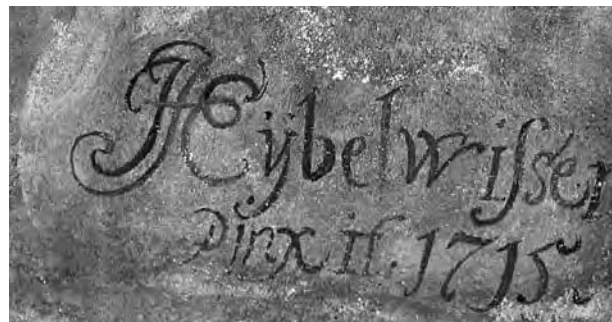 JJEÿbelwiſser
Pinxit. 1715.